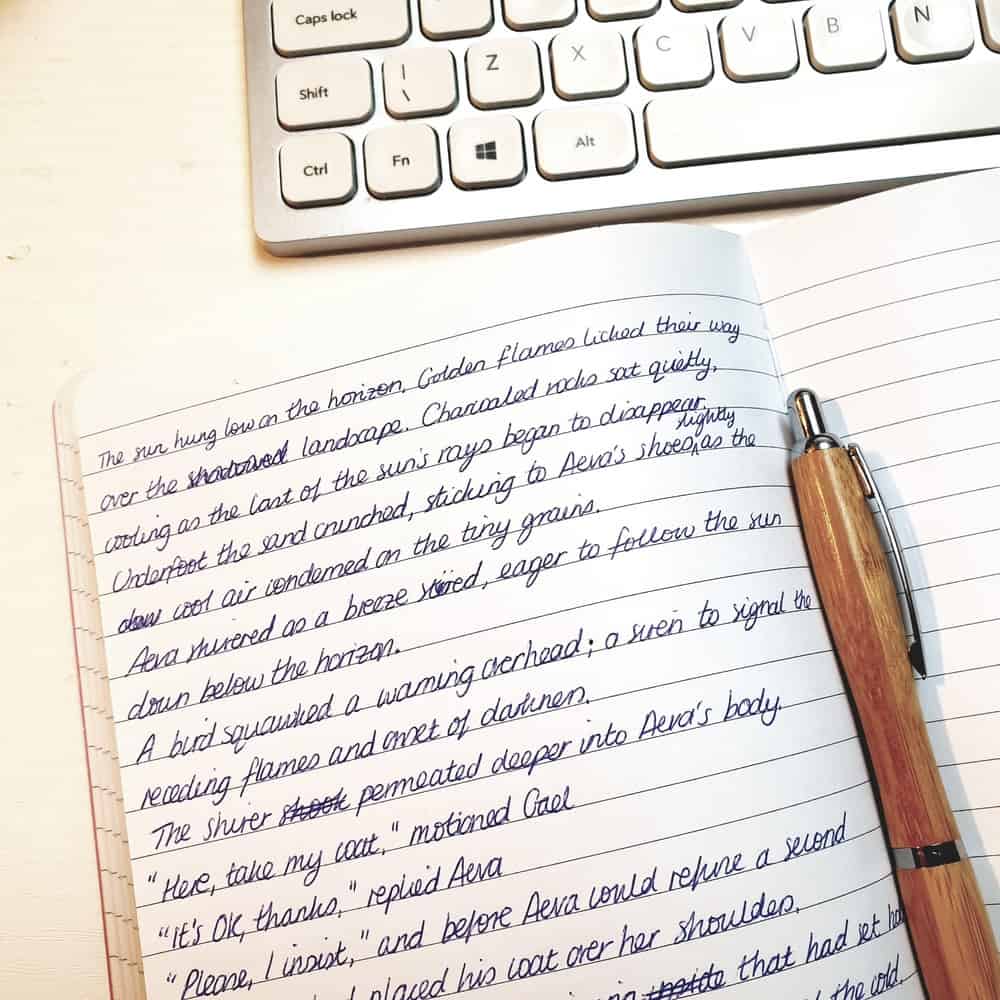 Caps lock
Shift | \ Z X C V B N
Ctrl Fn Alt
The sun hung low on the horizon. Golden flames licked their way
over the shadowed landscape. Charcoaled rocks sat quietly,
cooling as the last of the sun's rays began to disappear.
slightly
Underfoot the sand crunched, sticking to Aeva's shoes, as the
dew cool air condensed on the tiny grains.
Aeva shivered as a breeze stirred, eager to follow the sun
down below the horizon.
A bird squawked a warning overhead; a siren to signal the
receding flames and onset of darkness.
The shiver shook permeated deeper into Aeva's body.
"Here, take my coat," motioned Gael
"It's OK, thanks," replied Aeva
"Please, I insist," and before Aeva could refuse a second
placed his coat over her shoulders.
inside that had set
the cold.